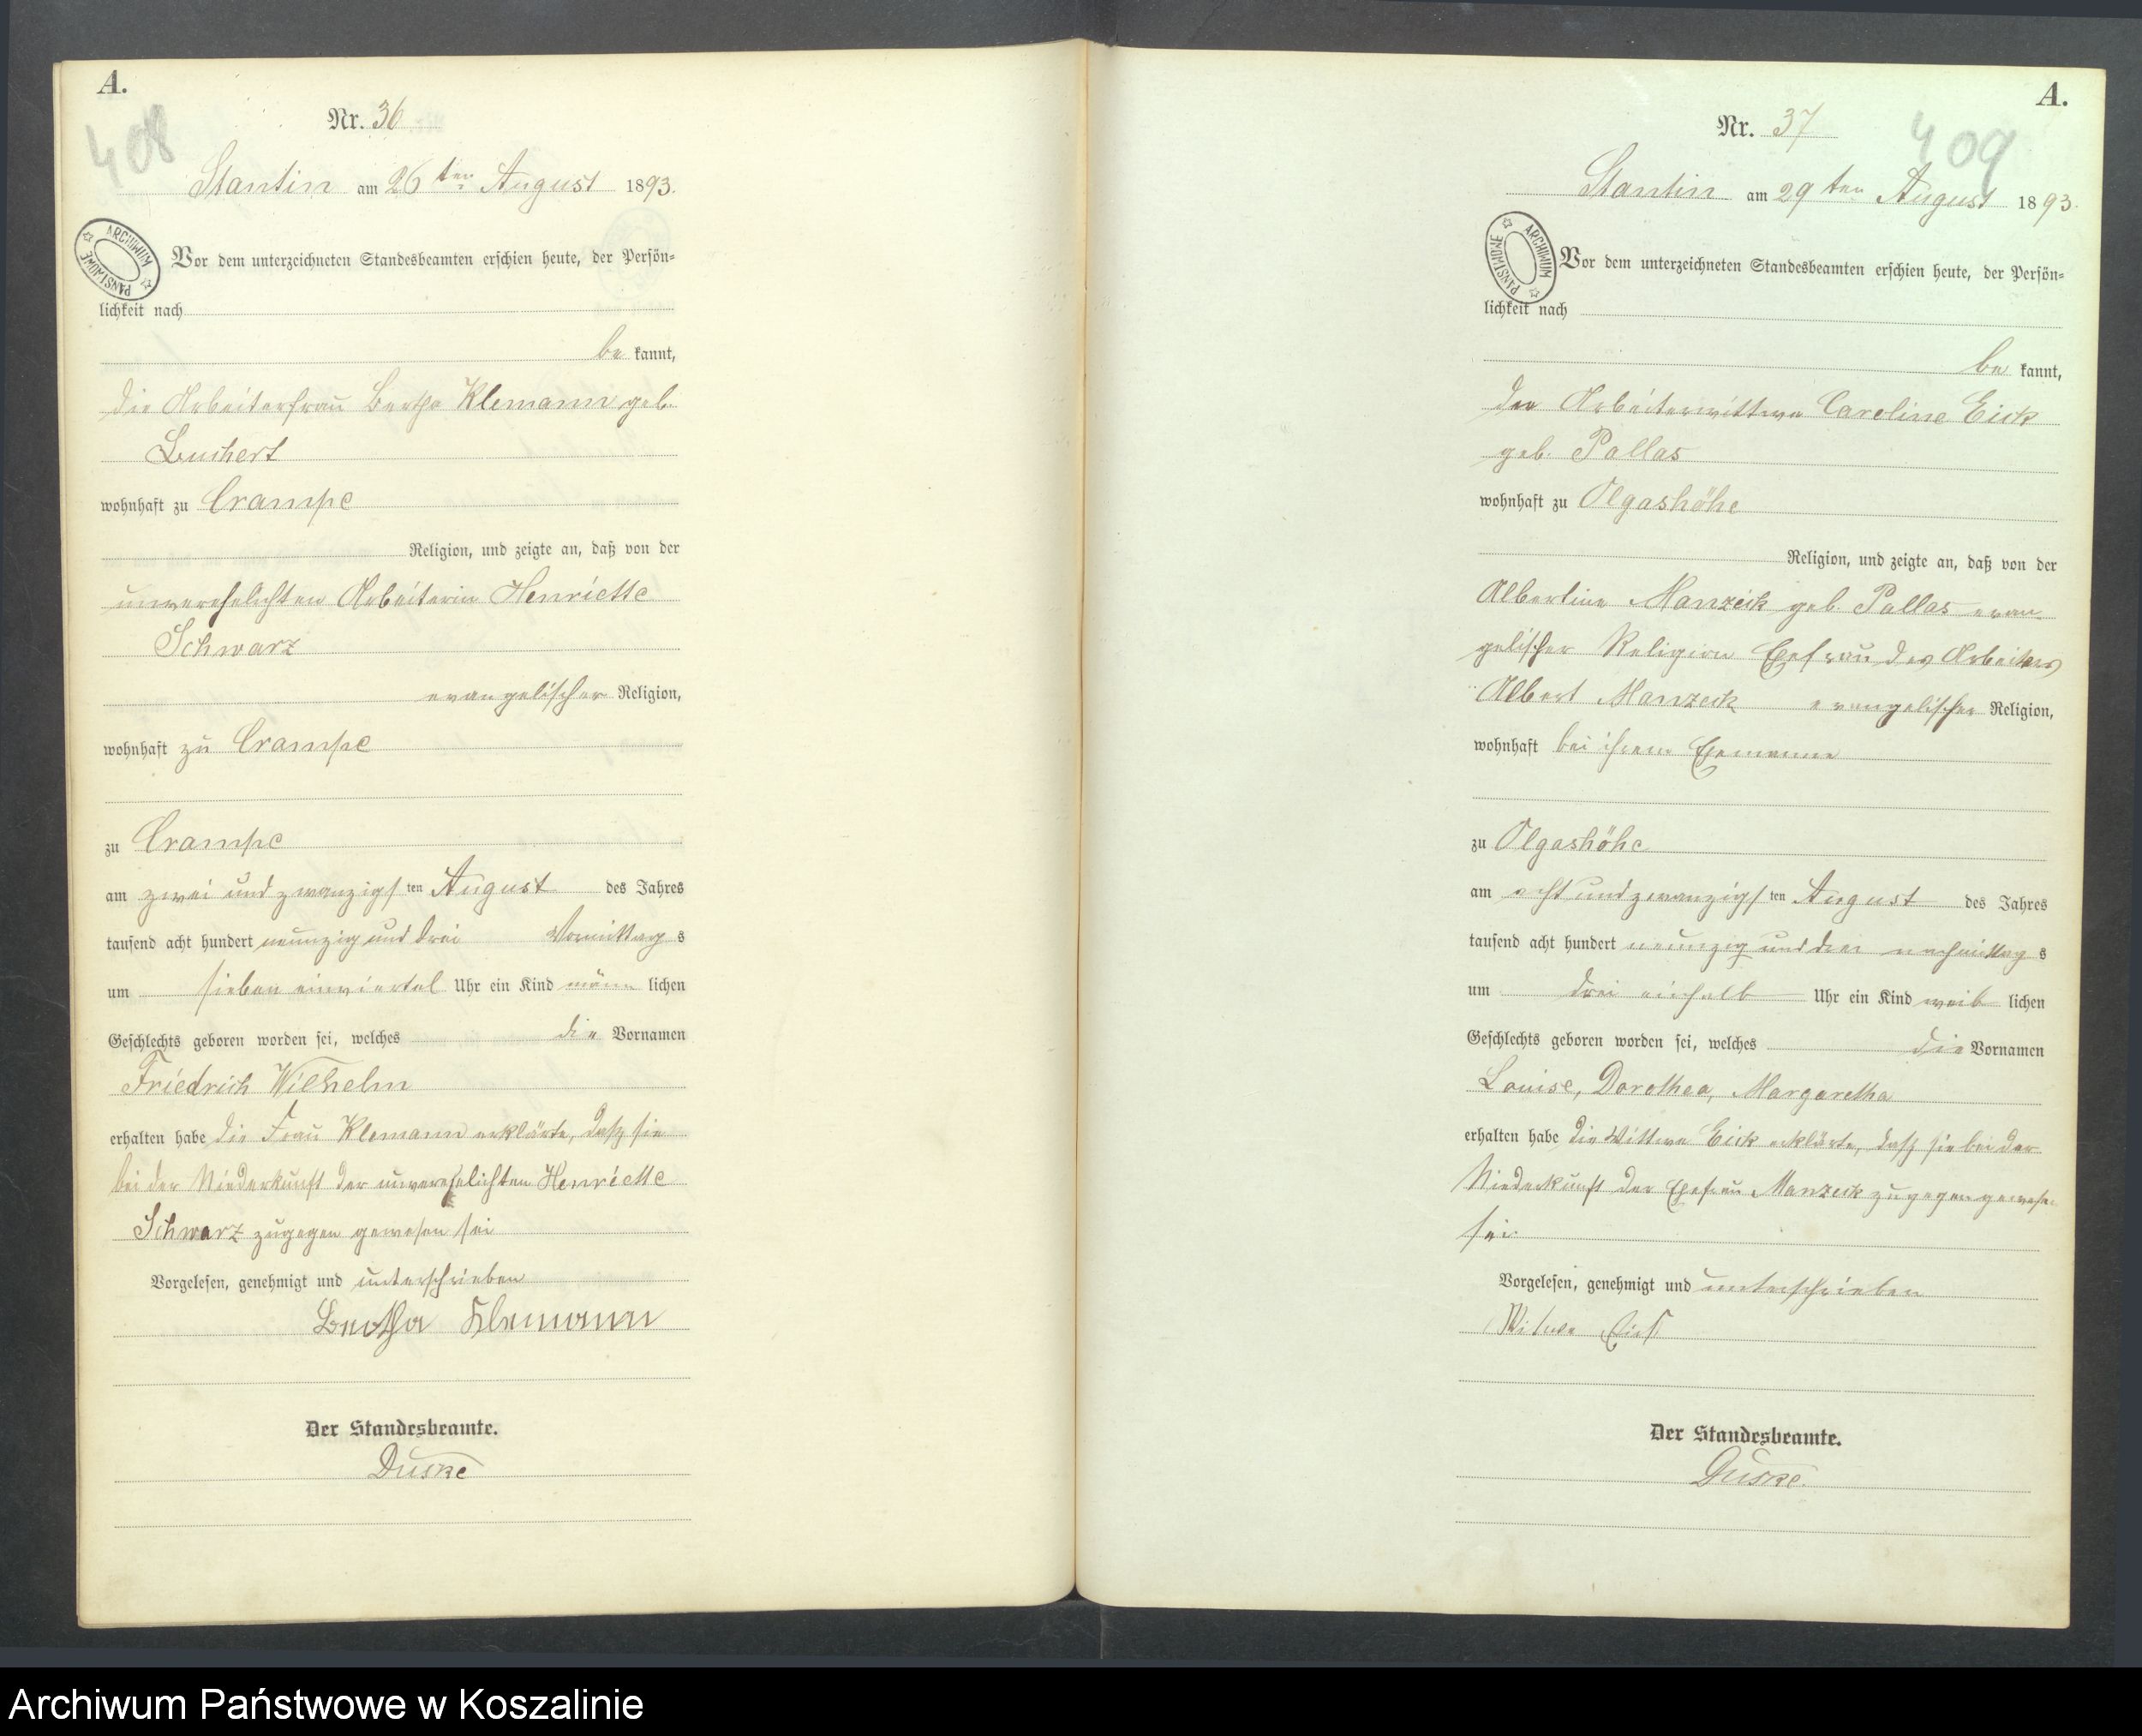 A.
408
Nr. 36
Stantin am 26 ten August 1893.
ARCHIWUM PAŃSTWOWE
Vor dem unterzeichneten Standesbeamten erschien heute, der Persön-
lichkeit nach
be kannt,
die Arbeiterfrau Bertha Klemann geb.
Buchert
wohnhaft zu Crampe
Religion, und zeigte an, daß von der
unverehelichten Arbeiterin Henriette
Schwarz
evangelischer Religion,
wohnhaft zu Crampe
zu Crampe
am zwei und zwanzigs ten August des Jahres
tausend acht hundert neunzig und drei Vormittag s
um sieben einviertel Uhr ein Kind männ lichen
Geschlechts geboren worden sei, welches die Vornamen
Friedrich Wilhelm
erhalten habe die Frau Klemann erklärte, daß sie
bei der Niederkunft der unverehelichten Henriette
Schwarz zugegen gewesen sei
Vorgelesen, genehmigt und unterschrieben
Bertha Klemann
Der Standesbeamte.
Duske
A.
409
Nr. 37
Stantin am 29 ten August 1893.
ARCHIWUM PAŃSTWOWE
Vor dem unterzeichneten Standesbeamten erschien heute, der Persön-
lichkeit nach
be kannt,
der Arbeiterwittwe Caroline Eick
geb. Pallas
wohnhaft zu Olgashöhe
Religion, und zeigte an, daß von der
Albertine Manzeck geb. Pallas evan-
gelischer Religion Ehefrau des Arbeiters
Albert Manzeck evangelischer Religion,
wohnhaft bei ihrem Ehemanne
zu Olgashöhe
am acht und zwanzigs ten August des Jahres
tausend acht hundert neunzig und drei nachmittag s
um drei einhalb Uhr ein Kind weib lichen
Geschlechts geboren worden sei, welches die Vornamen
Louise, Dorothea, Margaretha
erhalten habe die Wittwe Eick erklärte, daß sie bei der
Niederkunft der Ehefrau Manzeck zugegen gewesen
sei.
Vorgelesen, genehmigt und unterschrieben
Witwe Eick
Der Standesbeamte.
Duske.
Archiwum Państwowe w Koszalinie